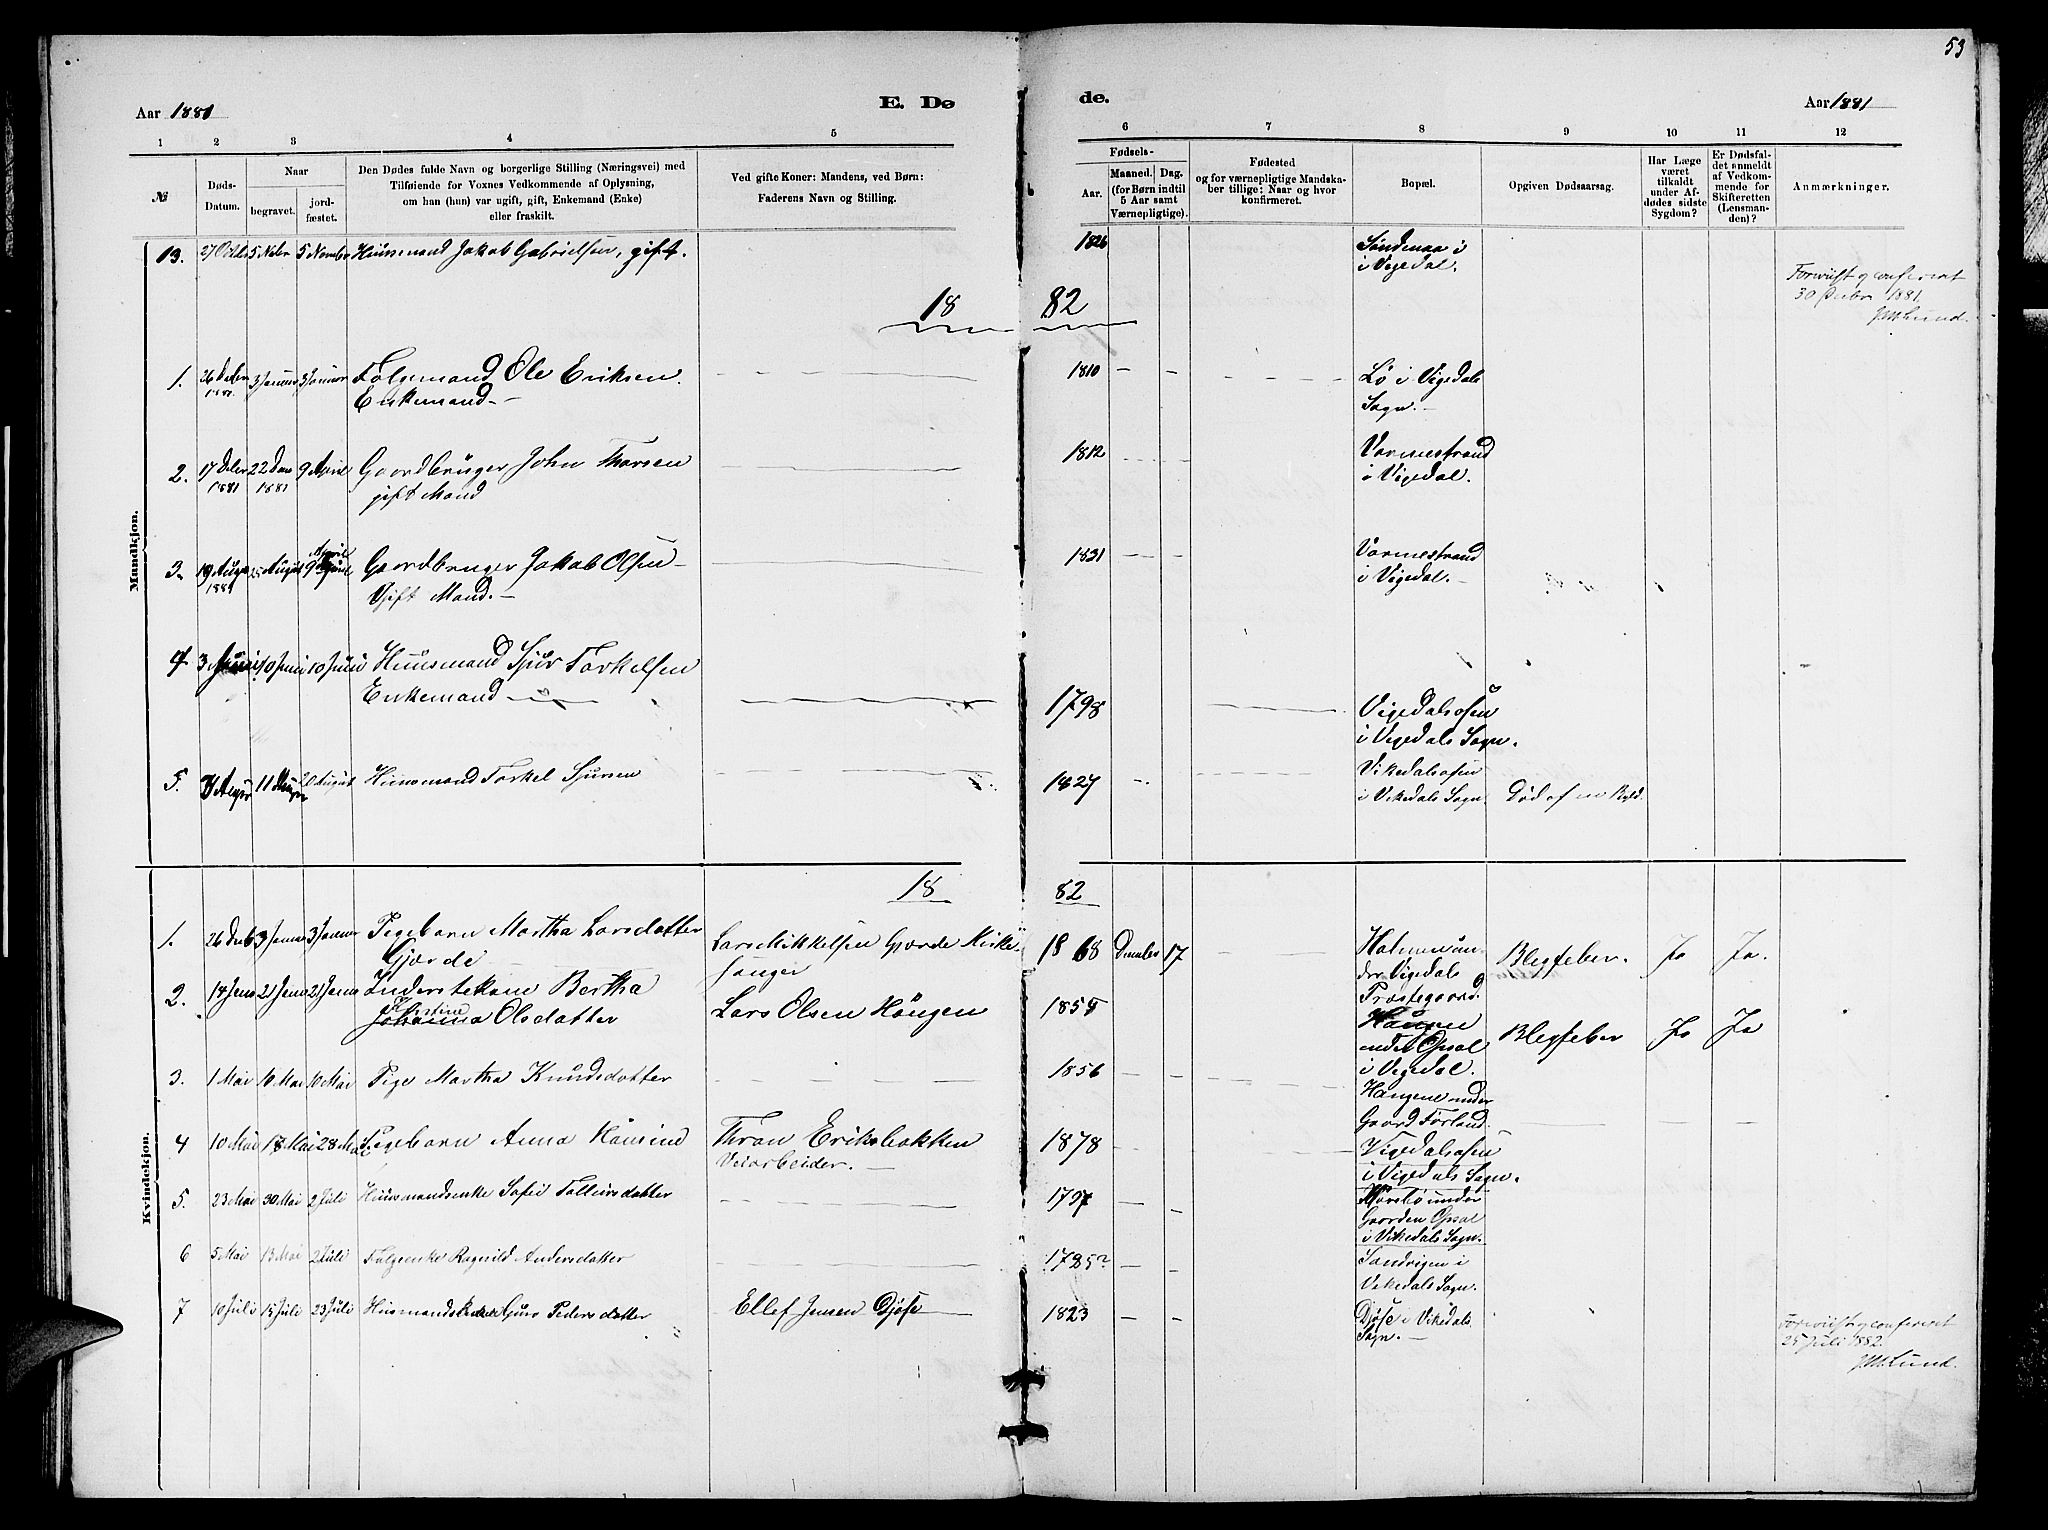 53
Aar 1881
E. Dø
de.
Aar 1881
1 2 3 4 5 6 7 8 9 10 11 12
№
Døds-
Datum.
Naar
begravet.
jord-
fæstet.
Den Dødes fulde Navn og borgerlige Stilling (Næringsvei) med
Tilføiende for Voxnes Vedkommende af Oplysning,
om han (hun) var ugift, gift, Enkemand (Enke)
eller fraskilt.
Ved gifte Koner: Mandens, ved Børn:
Faderens Navn og Stilling.
Fødsels-
Aar.
Maaned. Dag.
(for Børn indtil
5 Aar samt
Værnepligtige).
Fødested
og for værnepligtige Mandska-
ber tillige: Naar og hvor
konfirmeret.
Bopæl.
Opgiven Dødsaarsag.
Har Læge
været
tilkaldt
under Af-
dødes sidste
Sygdom?
Er Dødsfal-
det anmeldt
af Vedkom-
mende for
Skifteretten
(Lensman-
den)?
Anmærkninger.
Mandkjøn.
13. 27 Octbr 5 Nobr 5 Novembr Huusmand Jakob Gabrielsen, gift. 1826 Søndenaa i
i Vigedal.
Foreviist og confereret
30 Decbr 1881.
JM Lund.
18 82
1. 26 Decbr 3 Januar 3 Januar Folgemand Ole Eriksen. 1810 — — Lø i Vigedals
1881. Enkemand.— Sogn.—
2. 17 Decbr 22 Dec 9 April Gaardbruger John Thorsen 1812 Vormestrand
1881 1881 gift Mand i Vigedal.
3. 19 Augu 25 August 9 April Gaardbruger Jakob Olsen 1831 Vormestrand
1881 Gift Mand.— i Vigedal.—
4 3 Juni 10 Juni 10 Juni Huusmand Sjur Torkelsen
Enkemand 1798 Vigedalsosen
i Vigedals Sogn.
5. 4 Augus 11 August 20 August Huusmand Torkel Sjursen 1827 Vikedalsosen
i Vikedals Sogn. Død af en Byld.
Kvindekjøn.
18 82
1. 26 Decb 3 Januar 3 Januar Pigebarn Martha Larsdatter Lars Mikkelsen Gjerde Kirke- 1868 Decmber 17 Holmen un-
Gjerde sanger der Vigedals
Præstegaard. Blegfeber. Ja Ja.
2. 14 Janu 21 Janu 21 Janu Inderstekone Bertha
Kirstine
Johanna Olsdatter Lars Olsen Haugen 1855 Haugen
under Opsal
i Vigedal. Blegfeber Ja Ja
3. 1 Mai 10 Mai 10 Mai Pige Martha Knudsdatter 1856 Haugene under
Gaard Førland.
4 10 Mai 18 Mai 28 Mai Pigebarn Anna Hansine Thron Eriks bakken 1878 Vigedalsosen
Veiarbeider.— i Vigedals Sogn.
5. 23 Mai 30 Mai 2 Juli Huusmandsenke Sofie Tollevsdatter 1797 under
Gaarden Opsal
i Vikedals Sogn.
6 5 Mai 13 Mai 2 Juli Folgeenke Ragnild Andersdatter 1785? Sandvigen i
Vikedals Sogn.
7 10 Juli 15 Juli 23 Juli Husmandskone Guro Pedersdatter Ellef Jensen Djøse 1823 Djøse i Vikedals
Sogn.—
Foreviist og confereret
25 Juli 1882.
JM Lund.